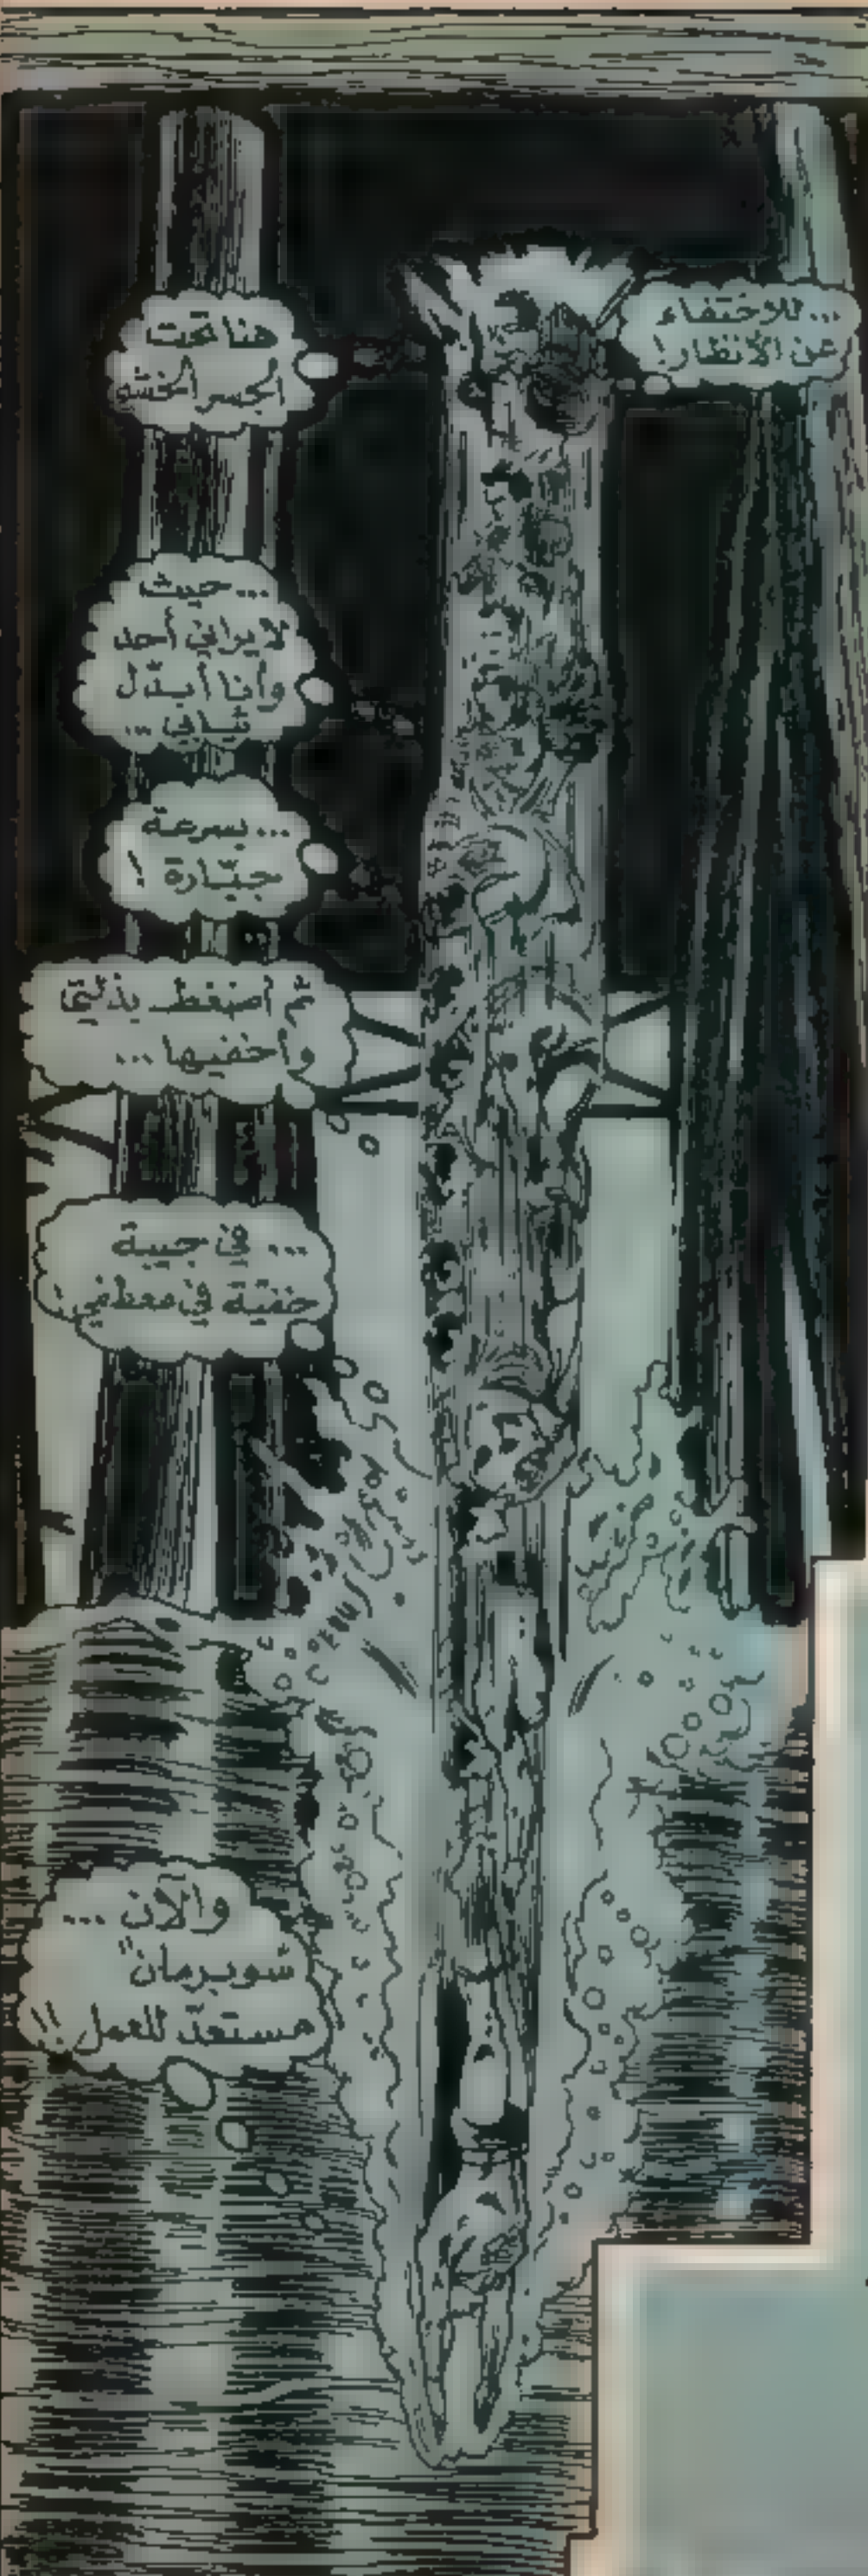 ...للاختفاء
عن الأنظار!
هنا تحت
الجسر الخشبي
...حيث
لا يراني أحد
وأنا أبدّل
ثيابي...
...بسرعة
جبّارة!
ثم أضغط بذلتي
وأخفيها...
...في جيبة
خفيّة في معطفي!
والآن...
"سوبرمان"
مستعدّ للعمل!!